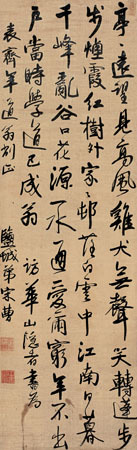 亭〻遠望見高風雞犬無聲笑轉蓬步
〻煙霞紅樹外家〻邨落白雲中江南日暮
千峰亂谷口花源一水通愛爾窮年不出
戶當時學道已成翁 訪華山隱者書為
袁齊年道翁削正
鹽城弟宋曹